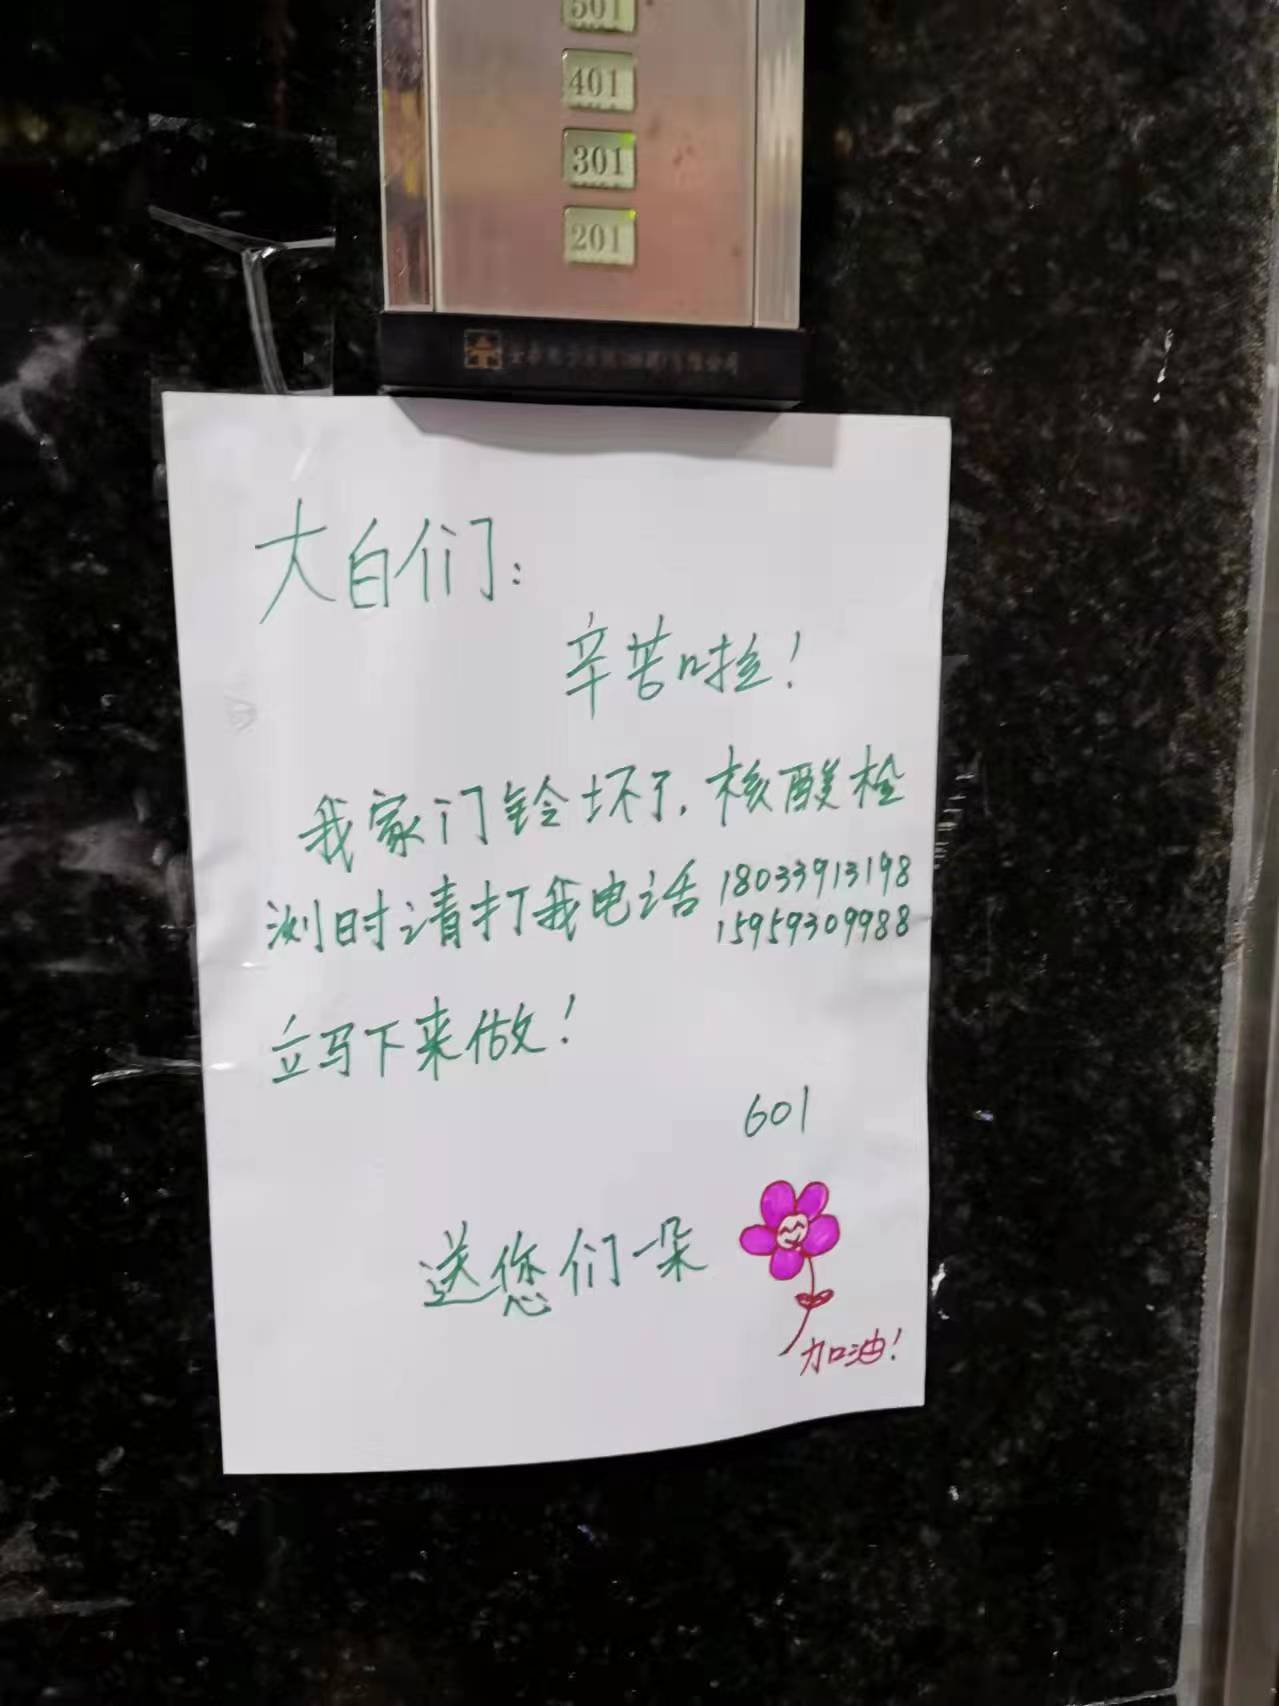 501
401
301
201
大白们：
辛苦啦！
我家门铃坏了，核酸检
测时请打我电话 18033913198
15959309988
立马下来做！
601
送您们一朵
加油！